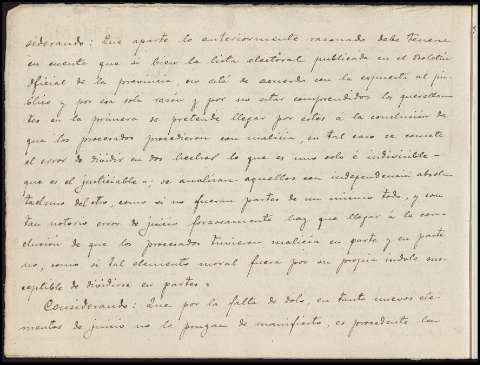 siderando: Que aparte lo anteriormente razonado debe tenerse
en cuenta que si bien la lista electoral publicada en el Boletín
Oficial de la provincia, no está de acuerdo con la expuesta al pú-
blico y por esa sola razón y por no estar comprendidos los querellan-
tes en la primera se pretende llegar por estos á la conclusión de
que los procesados procedieron con malicia, en tal caso se comete
el error de dividir en dos hechos lo que es uno solo é indivisible -
que es el justiciable -; se analizan aquellos con independencia absolu-
ta del otro, como si no fueran partes de un mismo todo, y con
tan notorio error de juicio forzosamente hay que llegar á la con-
clusión de que los procesados tuvieron malicia en parte y en parte
no, como si tal elemento moral fuera por su propia indole sus-
ceptible de dividirse en partes.
Considerando: Que por la falta de dolo, en tanto nuevos ele-
mentos de juicio no la pongan de manifiesto, es procedente la